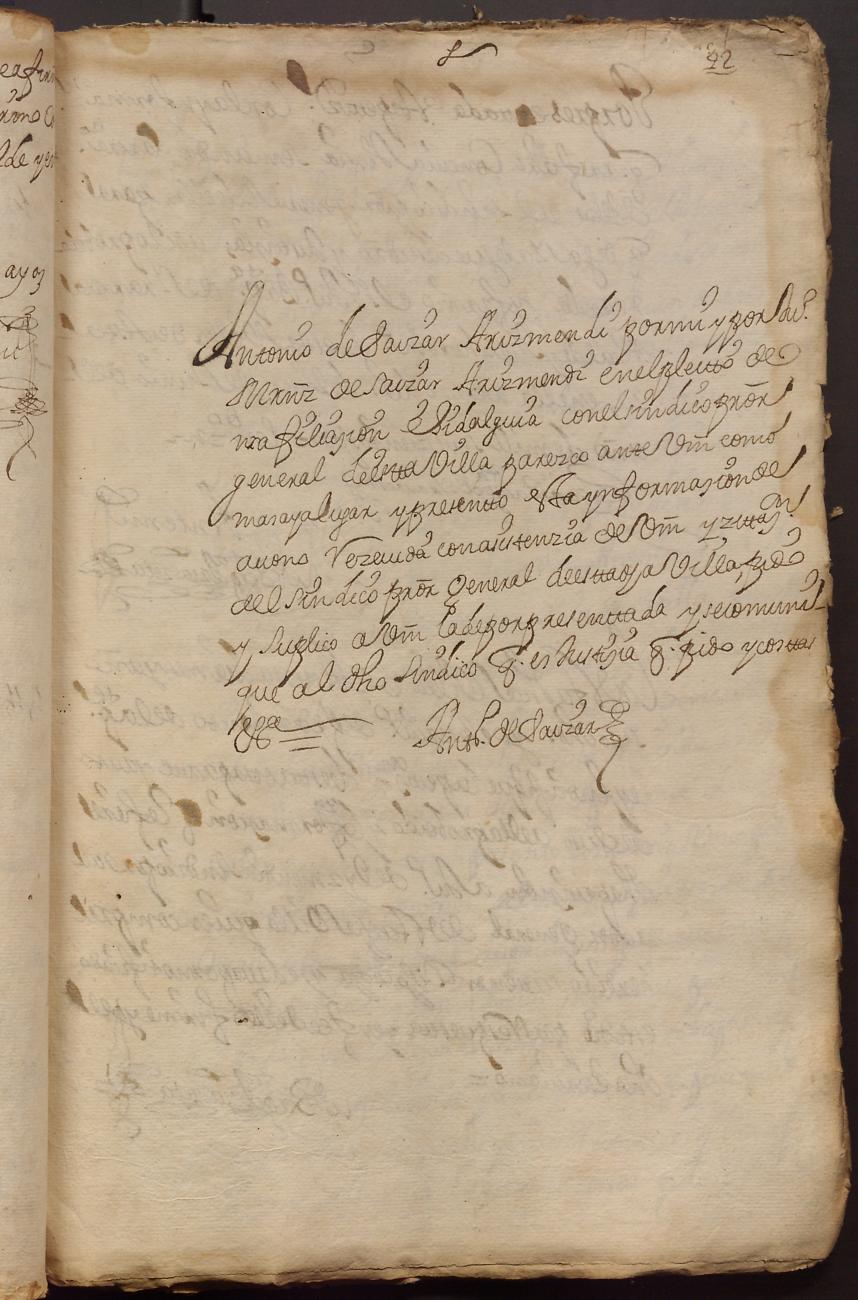 42
Antonio de Sauzar Arizmendi por mi y por
Mrnz de Sauzar Arizmendi en el pleitto de
nra filiasion e hidalguia con el sindico pror
general de estta Villa parezco ante Vm como
mas aya lugar y presentto esta ynformasion de
auono Rezeuida con asistenzia de Vm y zittasn
del sindico pror General de estta dha Villa, pido
y suplico a Vm la de por presenttada y se comuni
que al dho sindico q. es Justisia q. pido y costtas
&ca
Antt. de Sauzar
ayo